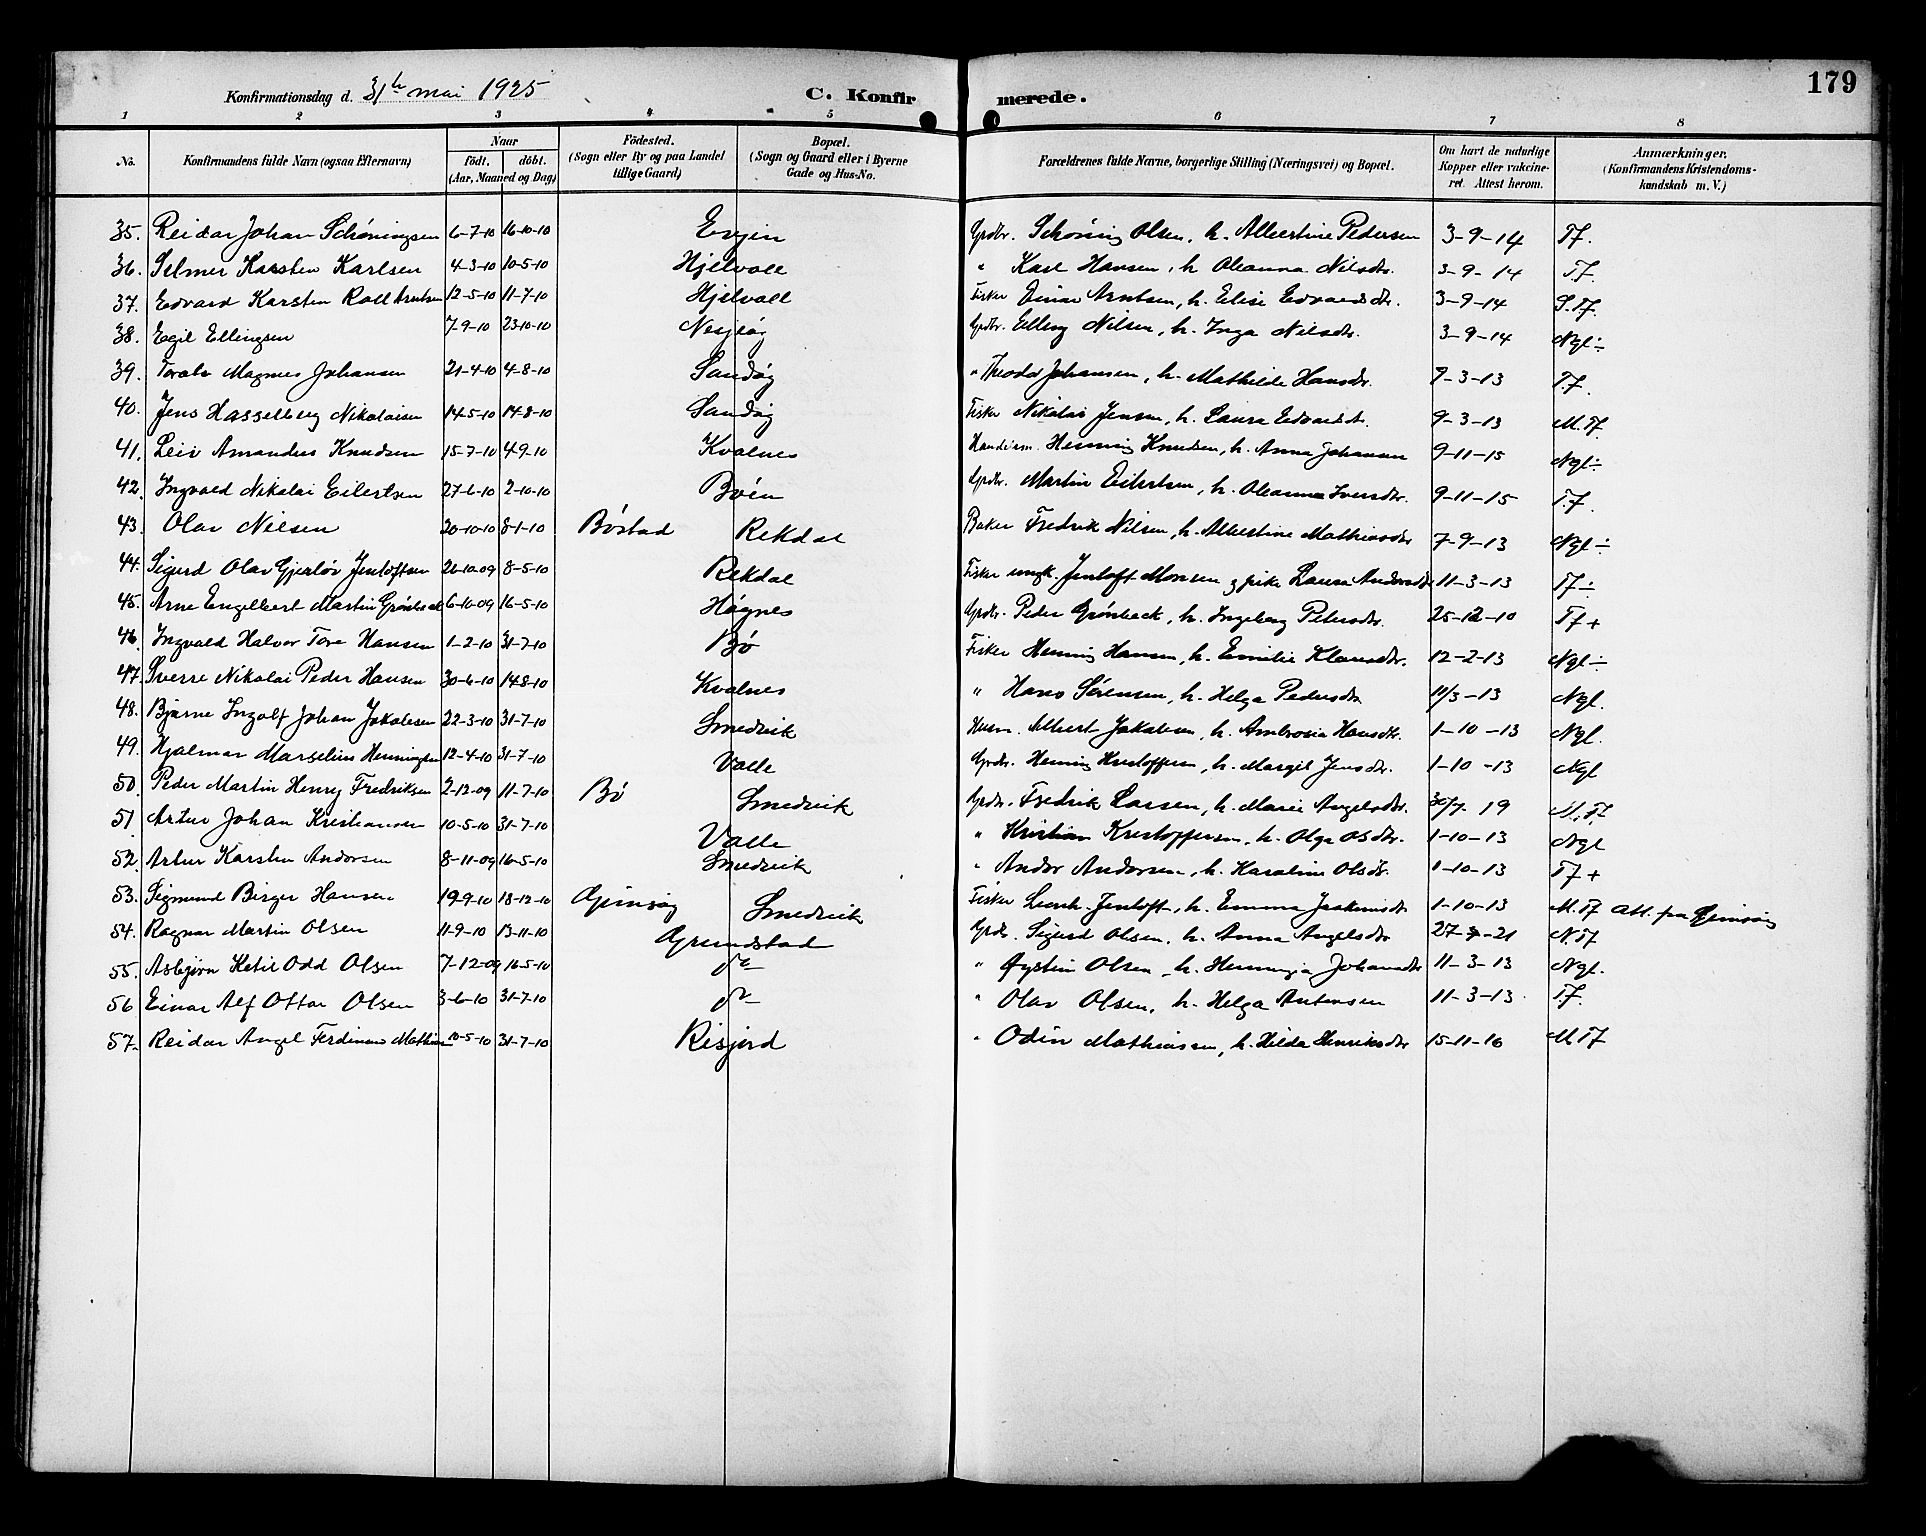 179
Konfirmationsdag d. 31te mai 1925 C. Konfirmerede.
1 2 3 4 5 6 7 8
No. Konfirmandens fulde Navn (ogsaa Efternavn) Naar födt. döbt. (Aar, Maaned og Dag) Födested. (Sogn eller By og paa Landet tillige Gaard) Bopæl. (Sogn og Gaard eller i Byerne Gade og Hus-No. Forældrenes fulde Navne, borgerlige Stilling (Næringsvei) og Bopæl. Om havt de naturlige Kopper eller vakcineret. Attest herom. Anmærkninger. (Konfirmandens Kristendomskundskab m. V.)
35. Reidar Johan Schøningsen 6-7-10 16-10-10 Evjen Grdbr. Schøning Olsen, h. Albertine Pedersen 3-9-14 Tf.
36. Selmer Karsten Karlsen 4-3-10 10-5-10 Hjelvoll " Karl Hansen, h. Oleanna Nilsdtr. 3-9-14 Tf.
37. Edvard Karsten Roll Arntsen 12-5-10 11-7-10 Hjelvoll Fisker Einar Arntsen, h. Elise Edvardsdtr. 3-9-14 S.Tf.
38. Egil Ellingsen 7-9-10 23-10-10 Nesjeøy Grdbr. Elling Nilsen, h. Inga Nilsdtr. 3-9-14 Ngl÷
39. Toralv Magnus Johansen 21-4-10 4-8-10 Sandøy " Theodor Johansen, h. Mathilde Hansdtr. 9-3-13 T.f.
40. Jens Hasselberg Nikolaisen 14-5-10 14-8-10 Sandøy Fisker Nikolai Jensen, h. Laura Edvardsdt. 9-3-13 M.Tf.
41. Leiv Amandus Knudsen 15-7-10 4-9-10 Kvalnes Handelsm. Henning Knudsen, h. Anna Johansen 9-11-15 Ngl÷
42. Ingvald Nikolai Eilertsen 27-6-10 2-10-10 Bøen Grdbr. Martin Eilertsen, h. Oleanna Iversdtr. 9-11-15 T.f.
43. Olav Nilsen 20-10-10 8-1-10 Bøstad Rekdal Baker Fredrik Nilsen, h. Albertine Mathiasdtr 7-9-13 Ngl÷
44. Sigurd Olav Gjerløv Jentoftsen 26-10-09 8-5-10 Rekdal Fisker ungk. Jentoft Monsen og pike Laura Andersdtr 11-3-13 Tf÷
45. Arne Engelbert Martin Grønbeck 6-10-09 16-5-10 Høgnes Grdbr. Peder Grønbeck, h. Ingeborg Petersdtr. 25-12-10 Tf+
46. Ingvald Halvor Tore Hansen 1-2-10 31-7-10 Bø Fisker Henning Hansen, h. Emilie Klausdtr. 12-2-13 Ngl÷
47. Sverre Nikolai Peder Hansen 30-6-10 14-8-10 Kvalnes " Hans Sørensen, h. Helga Pedersdtr 11/3-13 Ngl.
48. Bjarne Ingolf Johan Jakobsen 22-3-10 31-7-10 Smedvik Husm. Albert Jakobsen, h. Ambrosia Hansdtr. 1-10-13 Ngl.
49. Hjalmar Marselius Henningsen 12-4-10 31-7-10 Valle Grdbr. Henning Kristoffersen, h. Margit Jensdtr. 1-10-13 Ngl
50. Peder Martin Henry Fredriksen 2-12-09 11-7-10 Bø Smedvik Grdbr. Fredrik Larsen, h. Marie Angelsdtr. 30/7. 19 M.Tf
51 Artur Johan Kristiansen 10-5-10 31-7-10 Valle " Kristian Kristoffersen, h. Olga Olsdtr. 1-10-13 Ngl
52. Artur Karsten Andorsen 8-11-09 16-5-10 Smedvik " Andor Andorsen, h. Karoline Olsdtr. 1-10-13 Tf+
53. Sigmund Birger Hansen 19-9-10 18-12-10 Gimsøy Smedvik Fisker Leonh. Jentoft, h. Emma Joakimsdt 1-10-13 M.Tf Att. fra Gimsøy
54. Ragnar Martin Olsen 11-9-10 13-11-10 Grundstad Grdbr. Sigurd Olsen, h. Anna Angelsdtr 27-9-21 N.Tf
55. Asbjørn Ketil Odd Olsen 7-12-09 16-5-10 do " Øystein Olsen, h. Henninga Johansdtr 11-3-13 Ngl.
56 Einar Alf Ottar Olsen 3-6-10 31-7-10 do " Olav Olsen, h. Helga Antonsen 11-3-13. Tf.
57. Reidar Angel Ferdinand Mathisen 10-5-10 31-7-10 Risjord " Odin Mathiassen, h. Hilda Henriksdtr 15-11-16 M.Tf